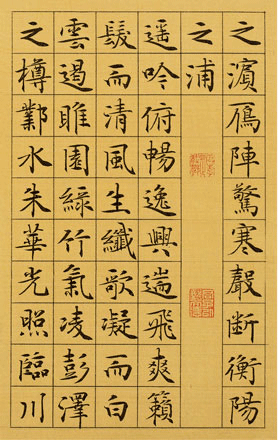 之濱鴈陣驚寒聲斷衡陽
之浦
遙吟俯暢逸興遄飛爽籟
髮而清風生纖歌凝而白
雲遏睢園綠竹氣凌彭澤
之樽鄴水朱華光照臨川